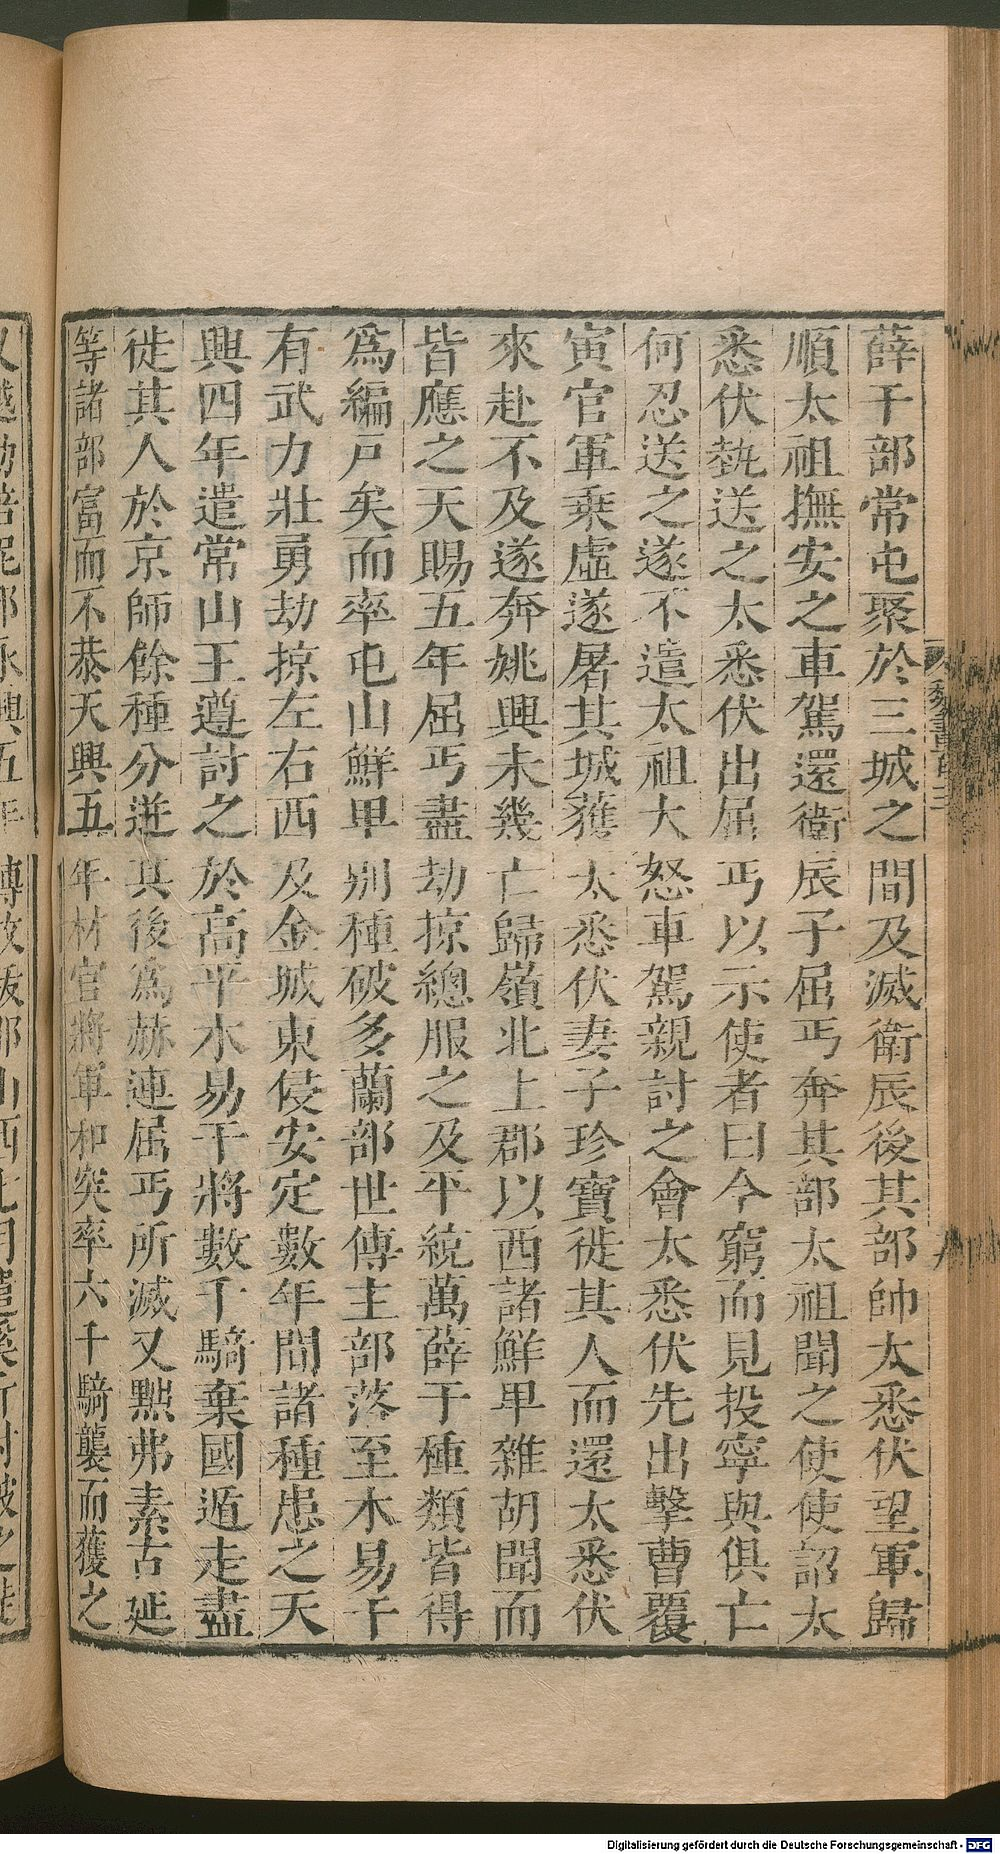 薛干部常屯聚於三城之間及滅衛辰後其部帥太悉伏望軍歸
順太祖撫安之車駕還衛辰子屈丐奔其部太祖聞之使使詔太
悉伏執送之太悉伏出屈丐以示使者曰今窮而見投寧與俱亡
何忍送之遂不遣太祖大怒車駕親討之會太悉伏先出擊曹覆
寅官軍乗虛遂屠其城獲太悉伏妻子珍寶徙其人而還太悉伏
來赴不及遂奔姚興未幾亡歸嶺北上郡以西諸鮮卑雜胡聞而
皆應之天賜五年屈丐盡劫掠總服之及平統萬薛干種類皆得
爲編戶矣而牽屯山鮮卑別種破多蘭部世傳主部落至木易干
有武力壯勇劫掠左右西及金城東侵安定數年間諸種患之天
興四年遣常山王遵討之於高平木易干將數千騎棄國遁走盡
徙其人於京師餘種分迸其後爲赫連屈丐所滅又黜弗素古延
等諸部富而不恭天興五年材官將軍和突率六千騎襲而獲之
魏書百三
Digitalisierung gefördert durch die Deutsche Forschungsgemeinschaft - DFG